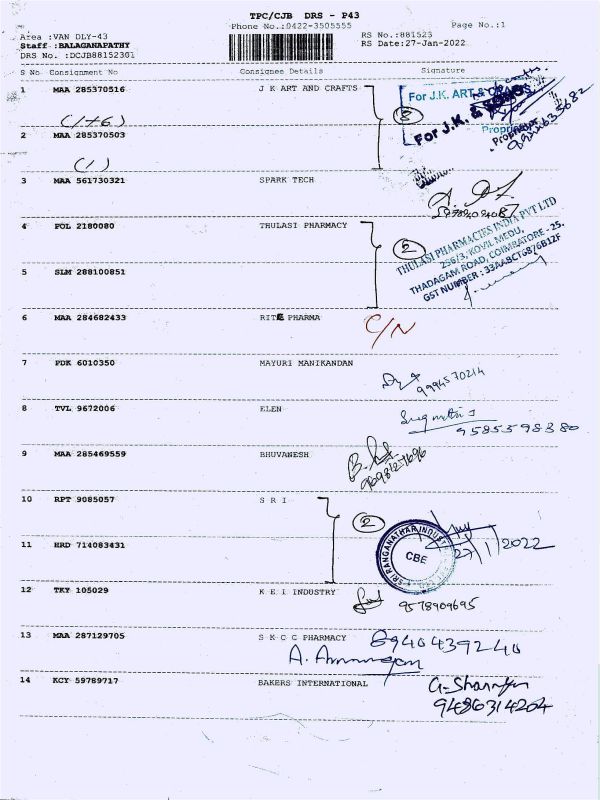 TPC/CJB DRS - P43
Phone No.:0422-3505555
Page No.:1
Area :VAN DLY-43
RS No.:881523
Staff :BALAGANAPATHY
RS Date:27-Jan-2022
DRS No. :DCJB88152301
S No Consignment No Consignee Details Signature
1 MAA 285370516 J K ART AND CRAFTS
For J.K. ART &
For J.K. &
Proprietor
(1+6)
2 MAA 285370503
(1)
3 MAA 561730321 SPARK TECH
4 POL 2180080 THULASI PHARMACY
THULASI PHARMACIES INDIA PVT LTD
256/3, KOVIL MEDU,
THADAGAM ROAD, COIMBATORE - 25.
GST NUMBER : 33AABCT6876B1ZF
5 SLM 288100851
6 MAA 284682433 RITE PHARMA C/N
7 PDK 6010350 MAYURI MANIKANDAN
9994570214
8 TVL 9672006 ELEN
9585598380
9 MAA 285469559 BHUVANESH
10 RPT 9085057 S R I
2
SRI RANGANATHAR INDUST
CBE
27/1/2022
11 HRD 714083431
12 TKY 105029 K E I INDUSTRY
9578909695
13 MAA 287129705 S K C C PHARMACY
8940439240
14 KCY 59789717 BAKERS INTERNATIONAL
9486314204